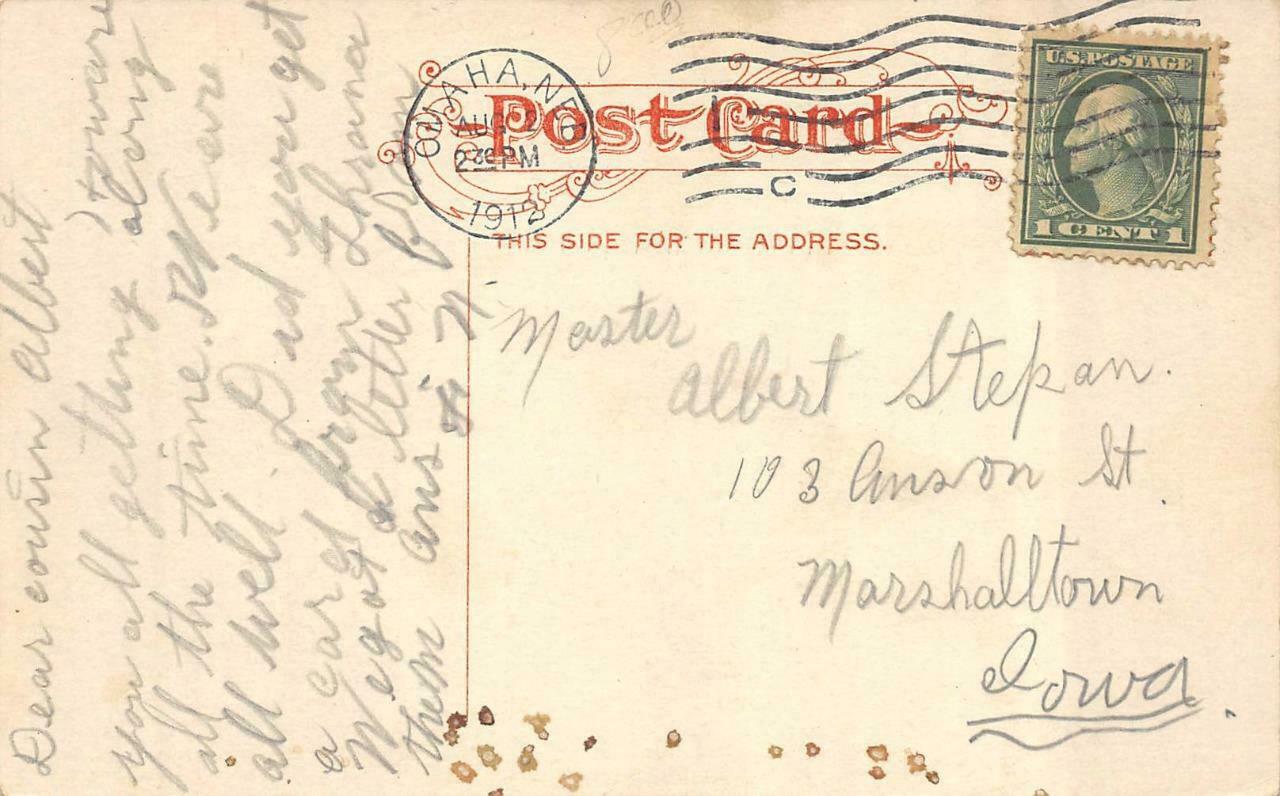 OMAHA, NEB
AUG
2 30 PM
1912
C
Post Card
THIS SIDE FOR THE ADDRESS.
U.S. POSTAGE
1 CENT 1
Dear cousin Albert
How are
you all getting along
all the time. We are
all well. Did you get
a card from
We got a letter from
them ans
Master
Albert Stepan.
103 Anson St.
Marshalltown
Iowa.